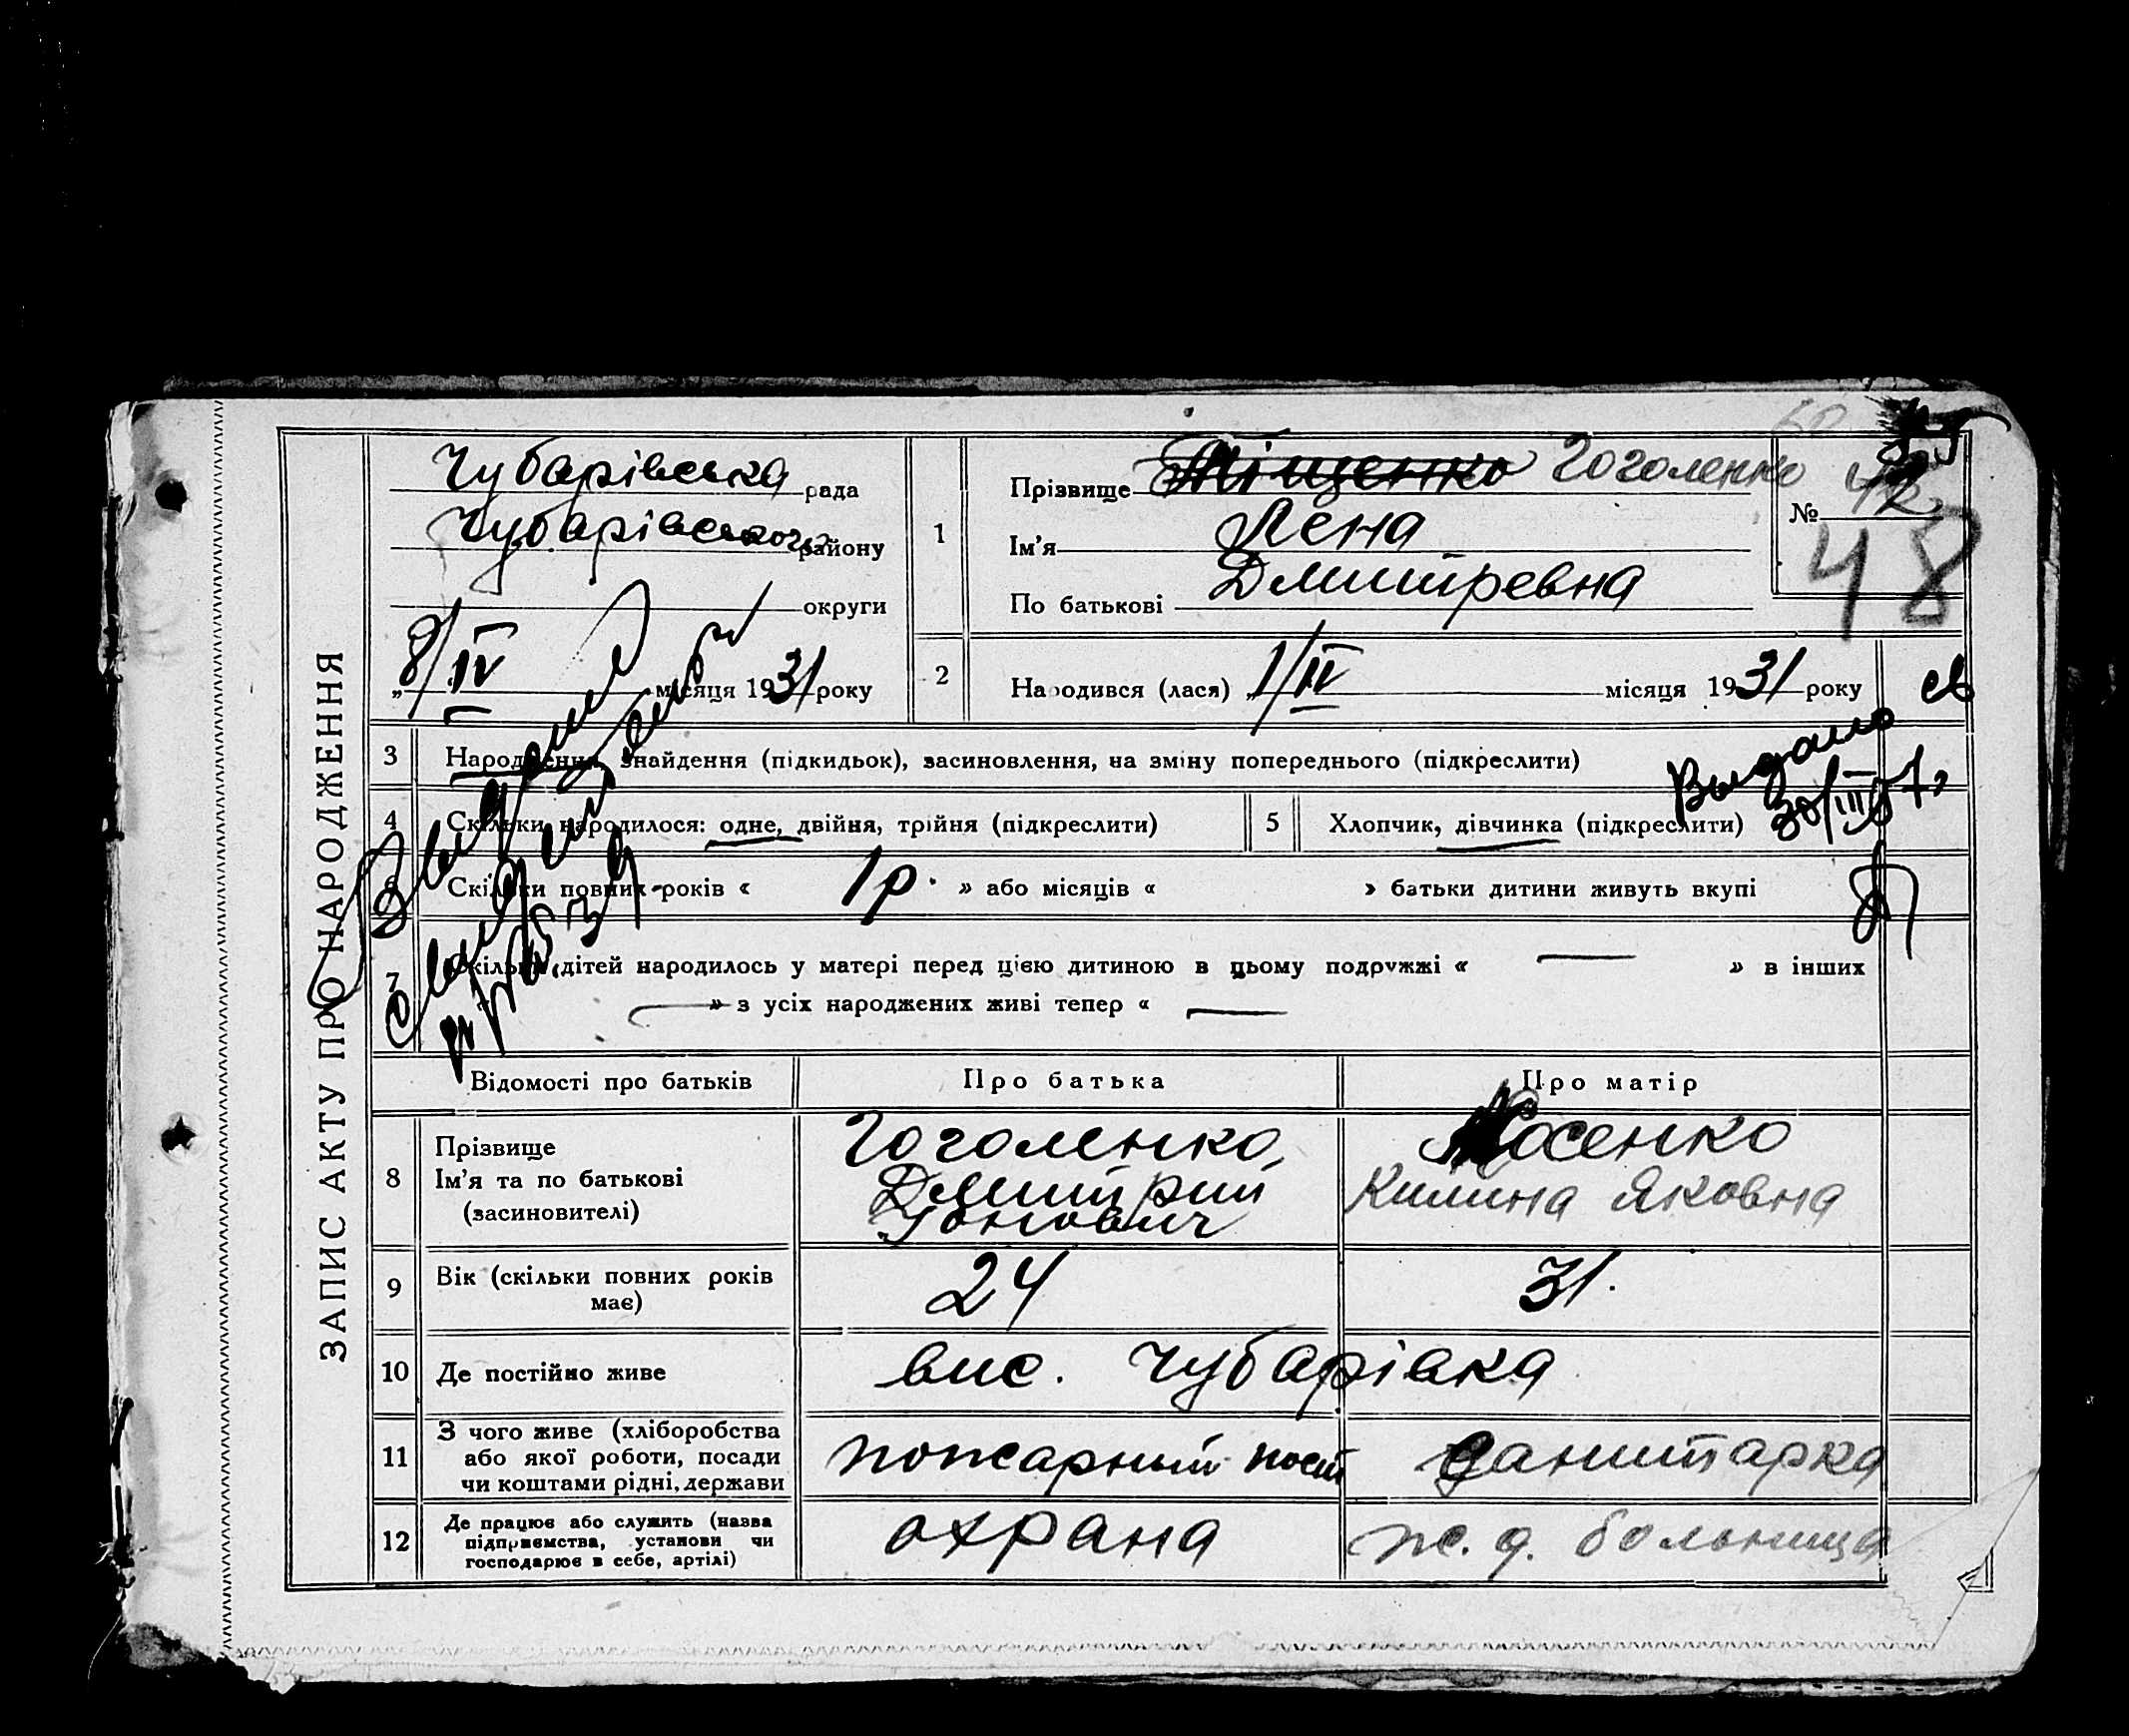 ЗАПИС АКТУ ПРО НАРОДЖЕННЯ
Чубарівська рада
Чубарівського району
округи
„8/IV місяця 1931 року
1
Прізвище Тіщенко Гоголенко
Ім'я Лена
По батькові Дмитревна
№ 42
48
2
Народився (лася) „1/IV місяця 1931 року
3 Народження, знайдення (підкидьок), засиновлення, на зміну попереднього (підкреслити)
Выдано
30/III
4 Скільки народилося: одне, двійня, трійня (підкреслити)
5 Хлопчик, дівчинка (підкреслити)
6 Скільки повних років « 1 р. » або місяців « » батьки дитини живуть вкупі
7 Скільки дітей народилось у матері перед цією дитиною в цьому подружжі « — » в інших
« — » з усіх народжених живі тепер « —
Відомості про батьків Про батька Про матір
8 Прізвище Ім'я та по батькові (засиновителі)
Гоголенко, Дмитрий
Носенко Килина Яковна
9 Вік (скільки повних років має) 24 31.
10 Де постійно живе вис. Чубарівка
11 З чого живе (хліборобства або якої роботи, посади чи коштами рідні, держави
пожарный пост санитарка
12 Де працює або служить (назва підприємства, установи чи господарює в себе, артілі)
охрана ж. д. больница